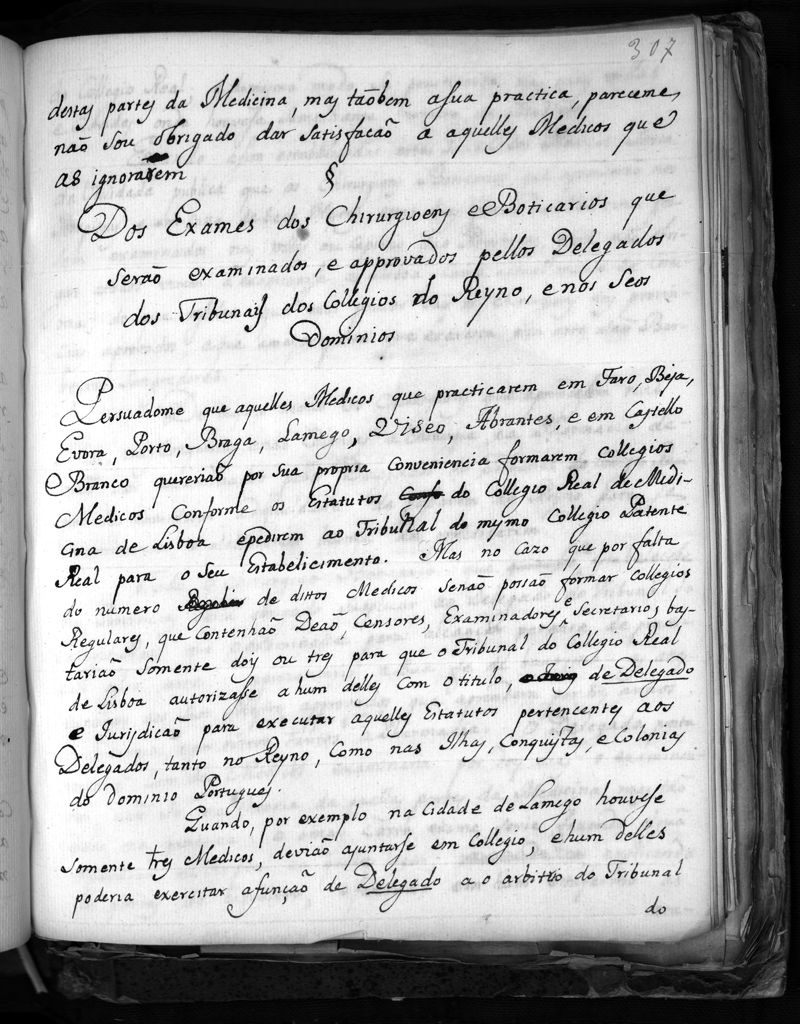 307
destas partes da Medicina, mas taõbem a sua practica, pareceme,
naõ sou obrigado dar satisfacaõ a aquelles Medicos que
as ignorarem
§
Dos Exames dos Chirurgioens e Boticarios que
seraõ examinados, e approvados pellos Delegados
dos Tribunais dos Collegios do Reyno, e nos seos
Dominios
Persuadome que aquelles Medicos que practicarem em Faro, Beja,
Evora, Porto, Braga, Lamego, Viseo, Abrantes, e em Castello
Branco quereriaõ por sua propria conveniencia formarem collegios
Medicos conforme os Estatutos do Collegio Real de Medi-
cina de Lisboa epedirem ao Tribunal do mesmo Collegio Patente
Real para o seu Estabelicimento. Mas no cazo que por falta
do numero de dittos Medicos senaõ possaõ formar Collegios
Regulares, que contenhaõ Deaõ, Censores, Examinadores e Secretarios, bas-
tariaõ somente dois ou tres para que o Tribunal do Collegio Real
de Lisboa autorizasse a hum delles com o titulo, de Delegado
e Jurisdicaõ para executar aquelles Estatutos pertencentes aos
Delegados, tanto no Reyno, como nas Ilhas, Conquistas, e Colonias
do dominio Portugues.
Quando, por exemplo na Cidade de Lamego houvesse
somente tres Medicos, deviaõ ajuntarse em Collegio, e hum delles
poderia exercitar a funçaõ de Delegado a o arbitrio do Tribunal
do